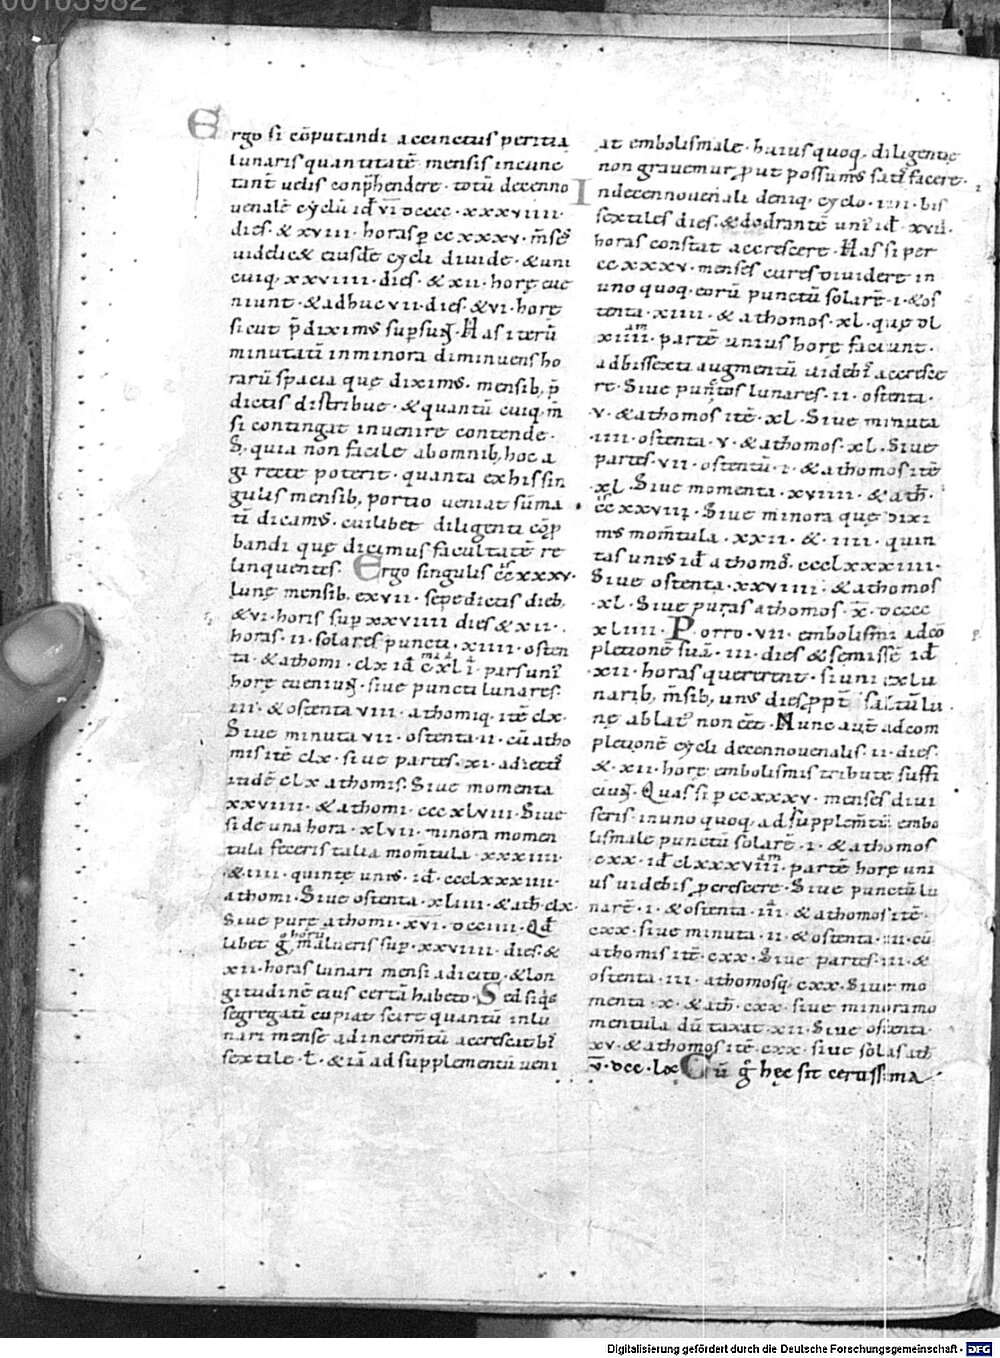 00103982
Ergo si cōputandi accinctus peritia
lunaris quantitatē mensis incunc
tant̄ uelis conp̄hendere. totū decenno
uenalē cyclū id̄ v̄i dcccc. xxxviiii.
dies. & xviii. horas ꝑ cc xxxv. m̄seſ
uidelic& eiusdē cycli diuide. & uni
cuiq, xxviiii. dies. & xii. horę eue
niunt. & adhuc vii. dies. & vi. horę
sicut p̄diximꝰ supsunt. Has iterū
minutatī in minora diminuens ho
rarū spacia quę diximꝰ. mensib, p̄
dictis distribue. & quantū cuiq, m̄
si contingat inuenire contende.
S, quia non facile ab omnib, hoc a
gi recte poterit. quanta ex his sin
gulis mensib, portio ueniat sūma
tī dicamꝰ. cuilibet diligenti cōp
bandi quę dicimus facultatē re
linquentes. Ergo singulis cc xxxv.
lunę mensib, ex vii. sepedictis dieb,
& vi. horis sup xxviiii dies & xii.
horas. ii. solares puncti. xiiii. osten
ta. & athomi. clx id̄ c xl i. pars uniꝰ
horę eueniunt. siue puncti lunares.
iii. & ostenta viii. athomiq, itē clx.
Siue minuta vii. ostenta. ii. cū atho
mis itē clx. siue partes. xi. adiectis
itidē clx athomis. Siue momenta
xxviiii. & athomi. ccc xlviii. Siue
si de una hora. xlvii. minora momen
tula feceris talia mom̄tula. xxxiiii.
& iii. quintę uniꝰ. id̄. ccclxxxiiii.
athomi. Siue ostenta. xliiii. & ath̄. clx.
Siue purę athomi. xvi. dcciiii. Qd̄
libet g̊ horū malueris sup. xxviiii. dies. &
xii. horas lunari mensi adicito. & lon
gitudinē eius certā habeto. Sed siqͥs
segregati cupiat scire quantū in lu
nari mense ad increm̄tū accrescat bi
sextile. t̄. & iā ad supplementū ueni
at embolismale. huius quoq, diligentię
non grauemur ꝓut possumꝰ satisfacere.
In decennouenali deniq, cyclo. iiii. bis
sextiles dies. & dodrantē uniꝰ id̄. xviii.
horas constat accrescere. Has si per
cc xxxv. menses cures diuidere in
uno quoq, eorū punctū solarē. i. & os
tenta. xiiii. & athomos. xl. quę dl
xiiii.am partē unius horę faciunt.
ad bissexti augmentū uidebis accresce
re. Siue punctos lunares. ii. ostenta.
v. & athomos itē. xl. Siue minuta
.iiii. ostenta. v. & athomos. xl. Siue
partes. vii. ostentū. i. & athomos itē
xl. Siue momenta. xviiii. & ath̄.
cc xxviii. Siue minora quę dixi
mꝰ mom̄tula. xxii. &. iiii. quin
tas unius id̄ athomos. cccclxxxiiii.
Siue ostenta. xxviiii. & athomos
.xl. Siue puras athomos. x̄. dcccc
xliiii. Porro. vii. embolismi ad cō
pletionē suā. iii. dies & semissē id̄
.xii. horas quererent. si uni ex lu
narib, m̄sib, unus dies ꝓpt̄ saltū lu
nę ablatꝰ non eēt. Nunc autē ad com
pletionē cycli decennouenalis. ii. dies.
& xii. horę embolismis tribute suffi
ciunt. Quas si ꝑ cc xxxv. menses diui
seris. in uno quoq, ad supplem̄tū embo
lismale punctū solarē. i. & athomos
cxx. id̄ clxxxviii.am partē horę uni
us uidebis ꝓcrescere. Siue punctū lu
narē. i. & ostenta. iii. & athomos itē.
cxx. siue minuta. ii. & ostenta. iii. cū
athomis itē cxx. Siue partes. iii. &
ostenta. iii. athomosq, cxx. Siue mo
menta. x. & ath̄. cxx. siue minora mo
mentula dū taxat. xii. Siue ostenta.
xv. & athomos itē. cxx. siue solas ath̄
v̄. dcc. lx. Cū g̊ hęc sit certissima
Digitalisierung gefördert durch die Deutsche Forschungsgemeinschaft - DFG